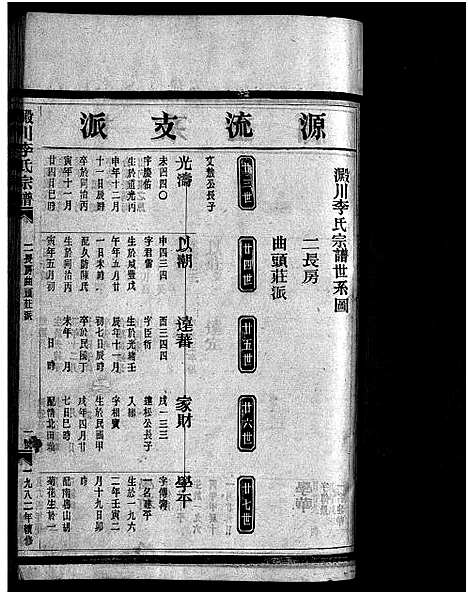 源流支派
澱川李氏宗譜世系圖
二長房
曲頭莊派
廿三世
廿四世
廿五世
廿六世
廿七世
文數公長子
光濤
未四四〇
生於道光丙
申年十二月
十一日辰時
卒於同治丙
寅年十一月
廿四日巳時
以潮
申四三四
字君當
生於咸豐戊
午年五月廿
一日未時
生於同治丙
寅年五月初
達蕃
酉三四四
字臣衍
生於光緒壬
辰年十一月
初七日辰時
卒於民國丁
未年 月
日 時
家財
戌一三三
達松公長子
字相寶
生於民國甲
戌年四月廿
七日巳時
學平
字傳濤
一名建平
生於一九六
二年壬寅二
月十九日卯
時
配南房山胡
菊花生於一
澱川李氏宗譜
二長房曲頭莊派
一九八二年續修